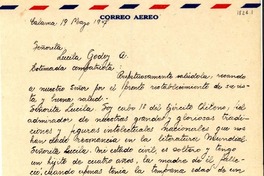 CORREO AEREO
Calama 19 Mayo
Señorita
Lucila Godoy A.
Estimada compatriota
Respetuosamente saludola, rogando
a nuestro Señor por el pronto restablecimiento de su vis-
ta y buena salud.
Señorita Lucila: Soy cabo 1º del Ejército Chileno, soy
admirador de nuestras grandes y gloriosas tradi-
ciones y figuras intelectuales nacionales que nos
han dado resonancia en la literatura Mundial.
Señorita Lucila: Mi estado civil es soltero y tengo
un hijito de cuatro años, la madre de él falle-
ció, cuando apenas tenía la temprana edad de un